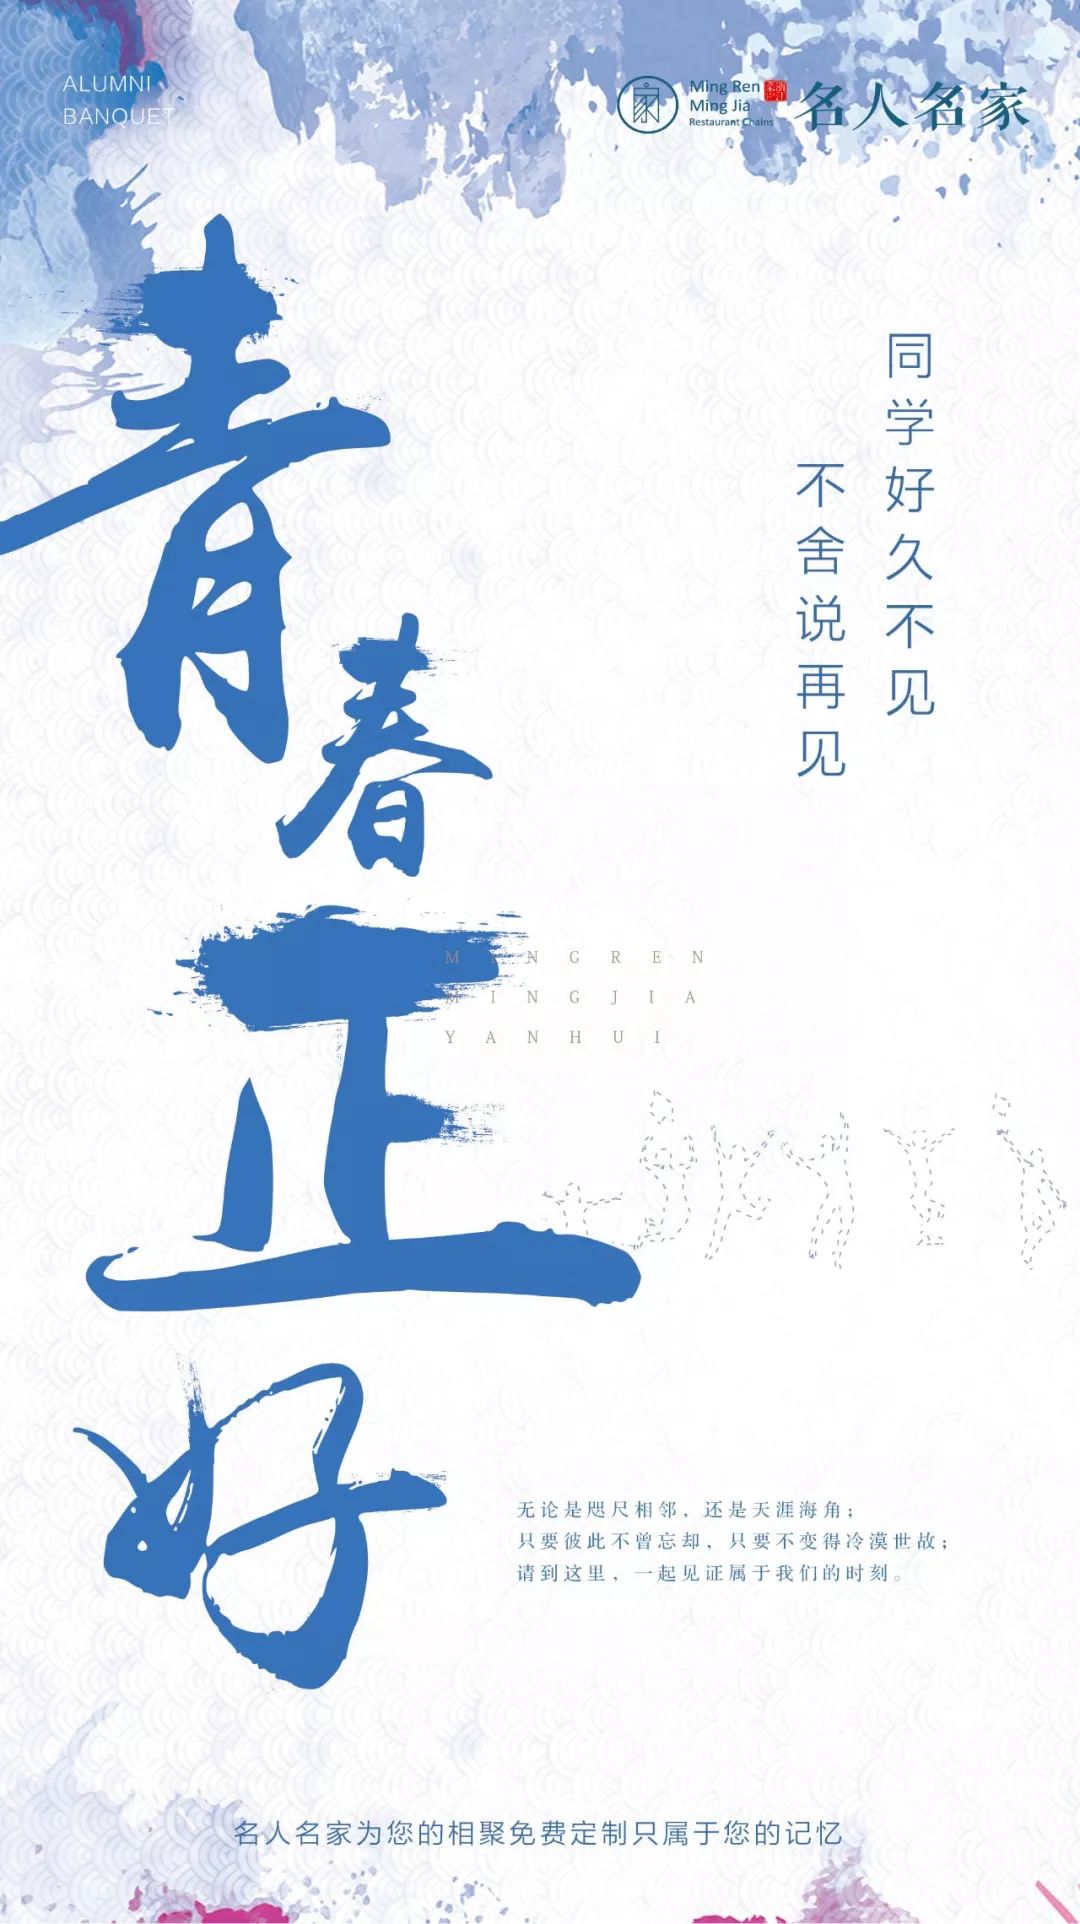 ALUMNI
BANQUET
Ming Ren
Ming Jia
Restaurant Chains
名人名家
同学好久不见
不舍说再见
青春正好
MINGREN
MINGJIA
YANHUI
无论是咫尺相邻，还是天涯海角；
只要彼此不曾忘却，只要不变得冷漠世故；
请到这里，一起见证属于我们的时刻。
名人名家为您的相聚免费定制只属于您的记忆